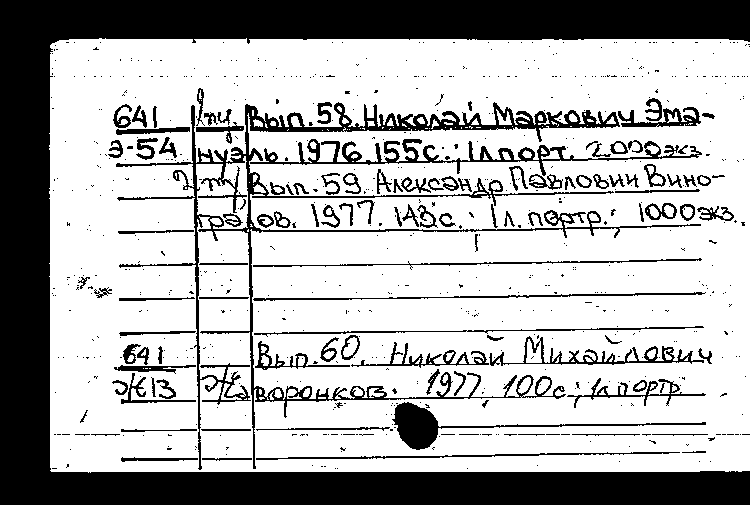 641 Вып. 58. Николай Маркович Эма-
Э-54 нуэль. 1976. 155с.; 1л порт. 2.000 экз.
Вып. 59. Александр Павлович Вино-
градов. 1977. 148с.; 1л. портр.; 1000 экз.
641 Вып. 60. Николай Михайлович
Ж13 Жаворонков. 1977. 100с; 1л портр.